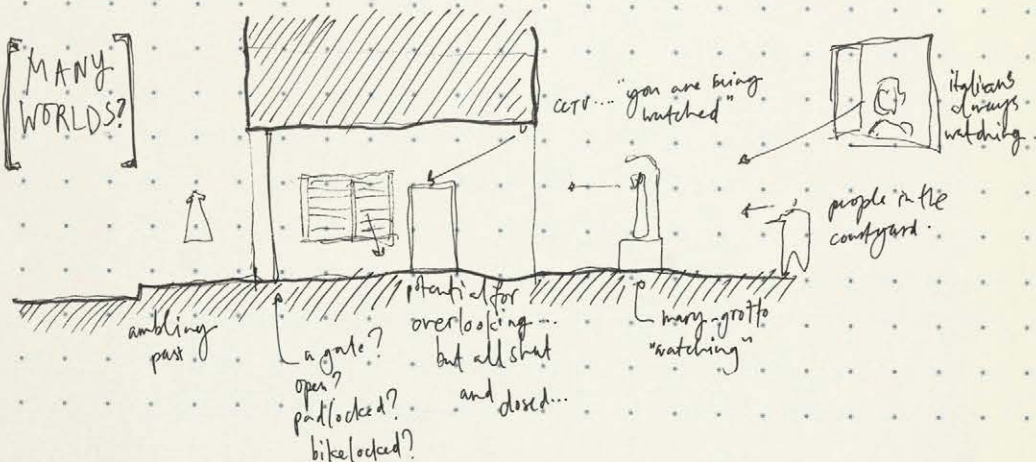 MANY
WORLDS?
CCTV... "you are being
watched"
italians
always
watching.
people in the
courtyard.
ambling
past
a gate?
open?
padlocked?
bikelocked?
potential for
overlooking...
but all shut
and closed...
mary-grotto
"watching"